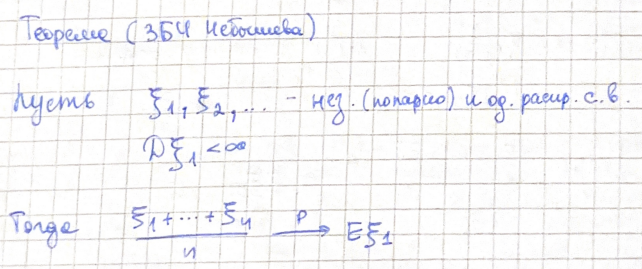 Теорема (ЗБЧ Чебышева)
Пусть ξ₁, ξ₂, ... – нез. (попарно) и од. распр. с.в.
Dξ₁ < ∞
Тогда (ξ₁ + ... + ξₙ) / n →ᴾ Eξ₁